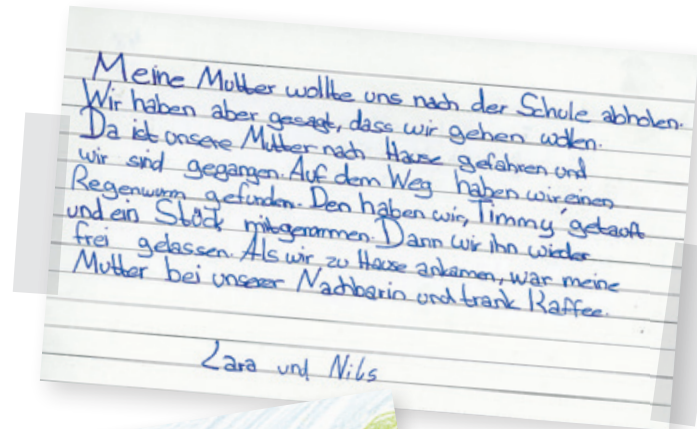 Meine Mutter wollte uns nach der Schule abholen.
Wir haben aber gesagt, dass wir gehen wollen.
Da ist unsere Mutter nach Hause gefahren und
wir sind gegangen. Auf dem Weg haben wir einen
Regenwurm gefunden. Den haben wir „Timmy“ getauft
und ein Stück mitgenommen. Dann wir ihn wieder
frei gelassen. Als wir zu Hause ankamen, war meine
Mutter bei unserer Nachbarin und trank Kaffee.
Lara und Nils